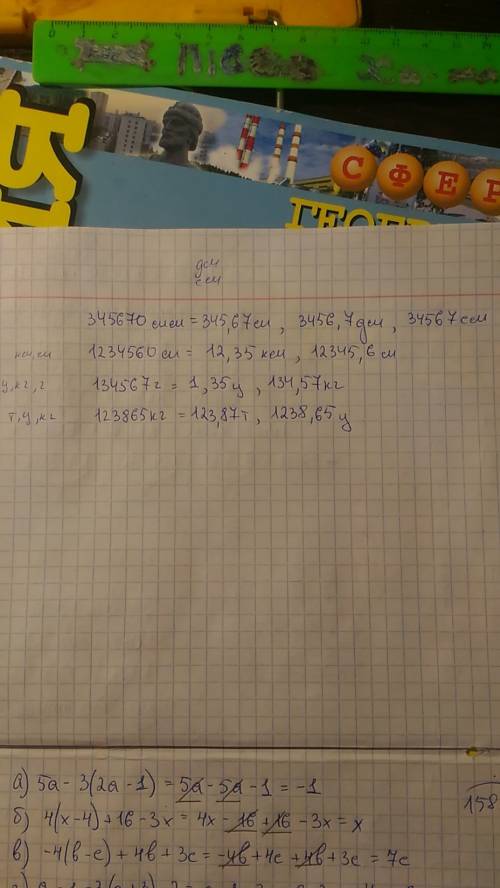 СФЕР
дм
см
345670 мм = 345,67 м, 3456,7 дм, 34567 см
км, м 1234560 см = 12,35 км, 12345,6 м
ц, кг, г 134567 г = 1,35 ц, 134,57 кг
т, ц, кг 123865 кг = 123,87 т, 1238,65 ц
а) 5а - 3(2а - 1) = 5а - 5а - 1 = -1
158
б) 4(х - 4) + 16 - 3х = 4х - 16 + 16 - 3х = х
в) -4(в - с) + 4в + 3с = -4в + 4с + 4в + 3с = 7с